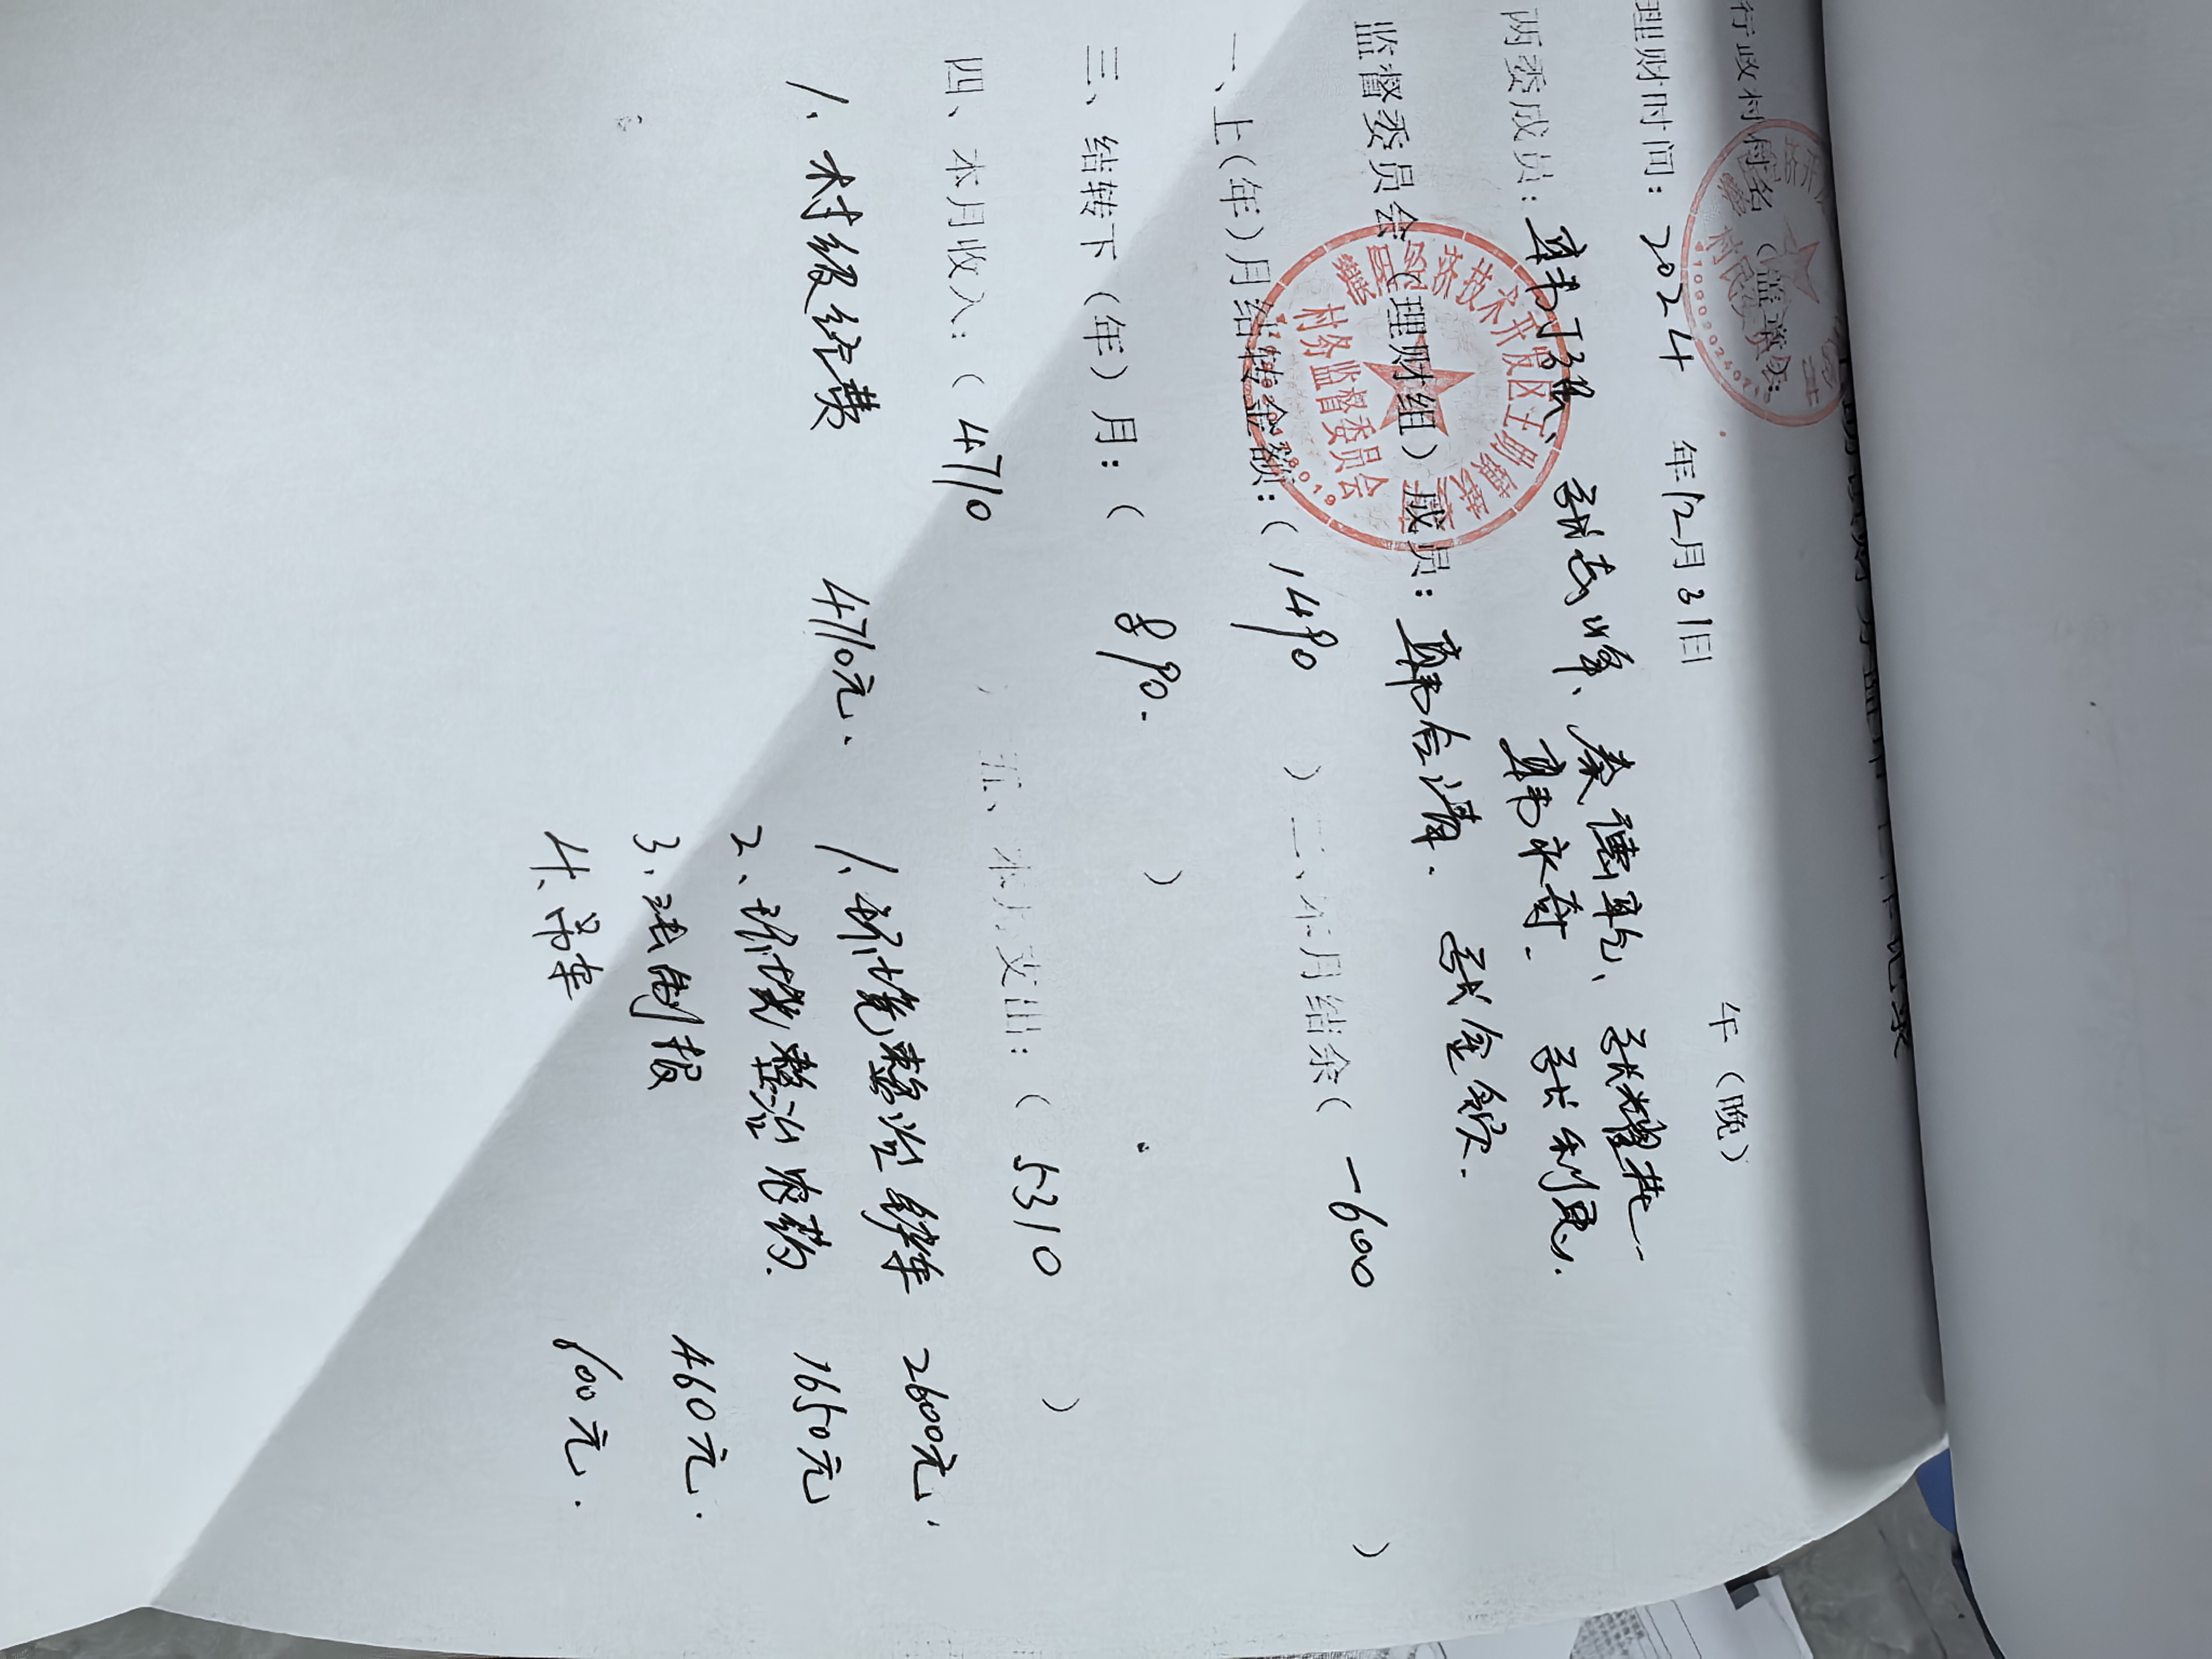 行政村村名（盖章）
村民委员会
理财时间：2024年12月31日 午（晚）
两委成员：
韩永奇. 张利更.
监督委员会（理财组）成员：韩合清. 张金钦.
经济技术开发区王助镇
村务监督委员会
一、上(年)月结转金额：（1490）二、本月结余（-600）
三、结转下（年）月：（890.）
四、本月收入：（4710）五、本月支出：（5310）
1、村级经费 4710元. 1、环境整治 铲车 2600元.
2、环境整治农药. 1650元
3、法制报 460元.
4、吊车 600元.